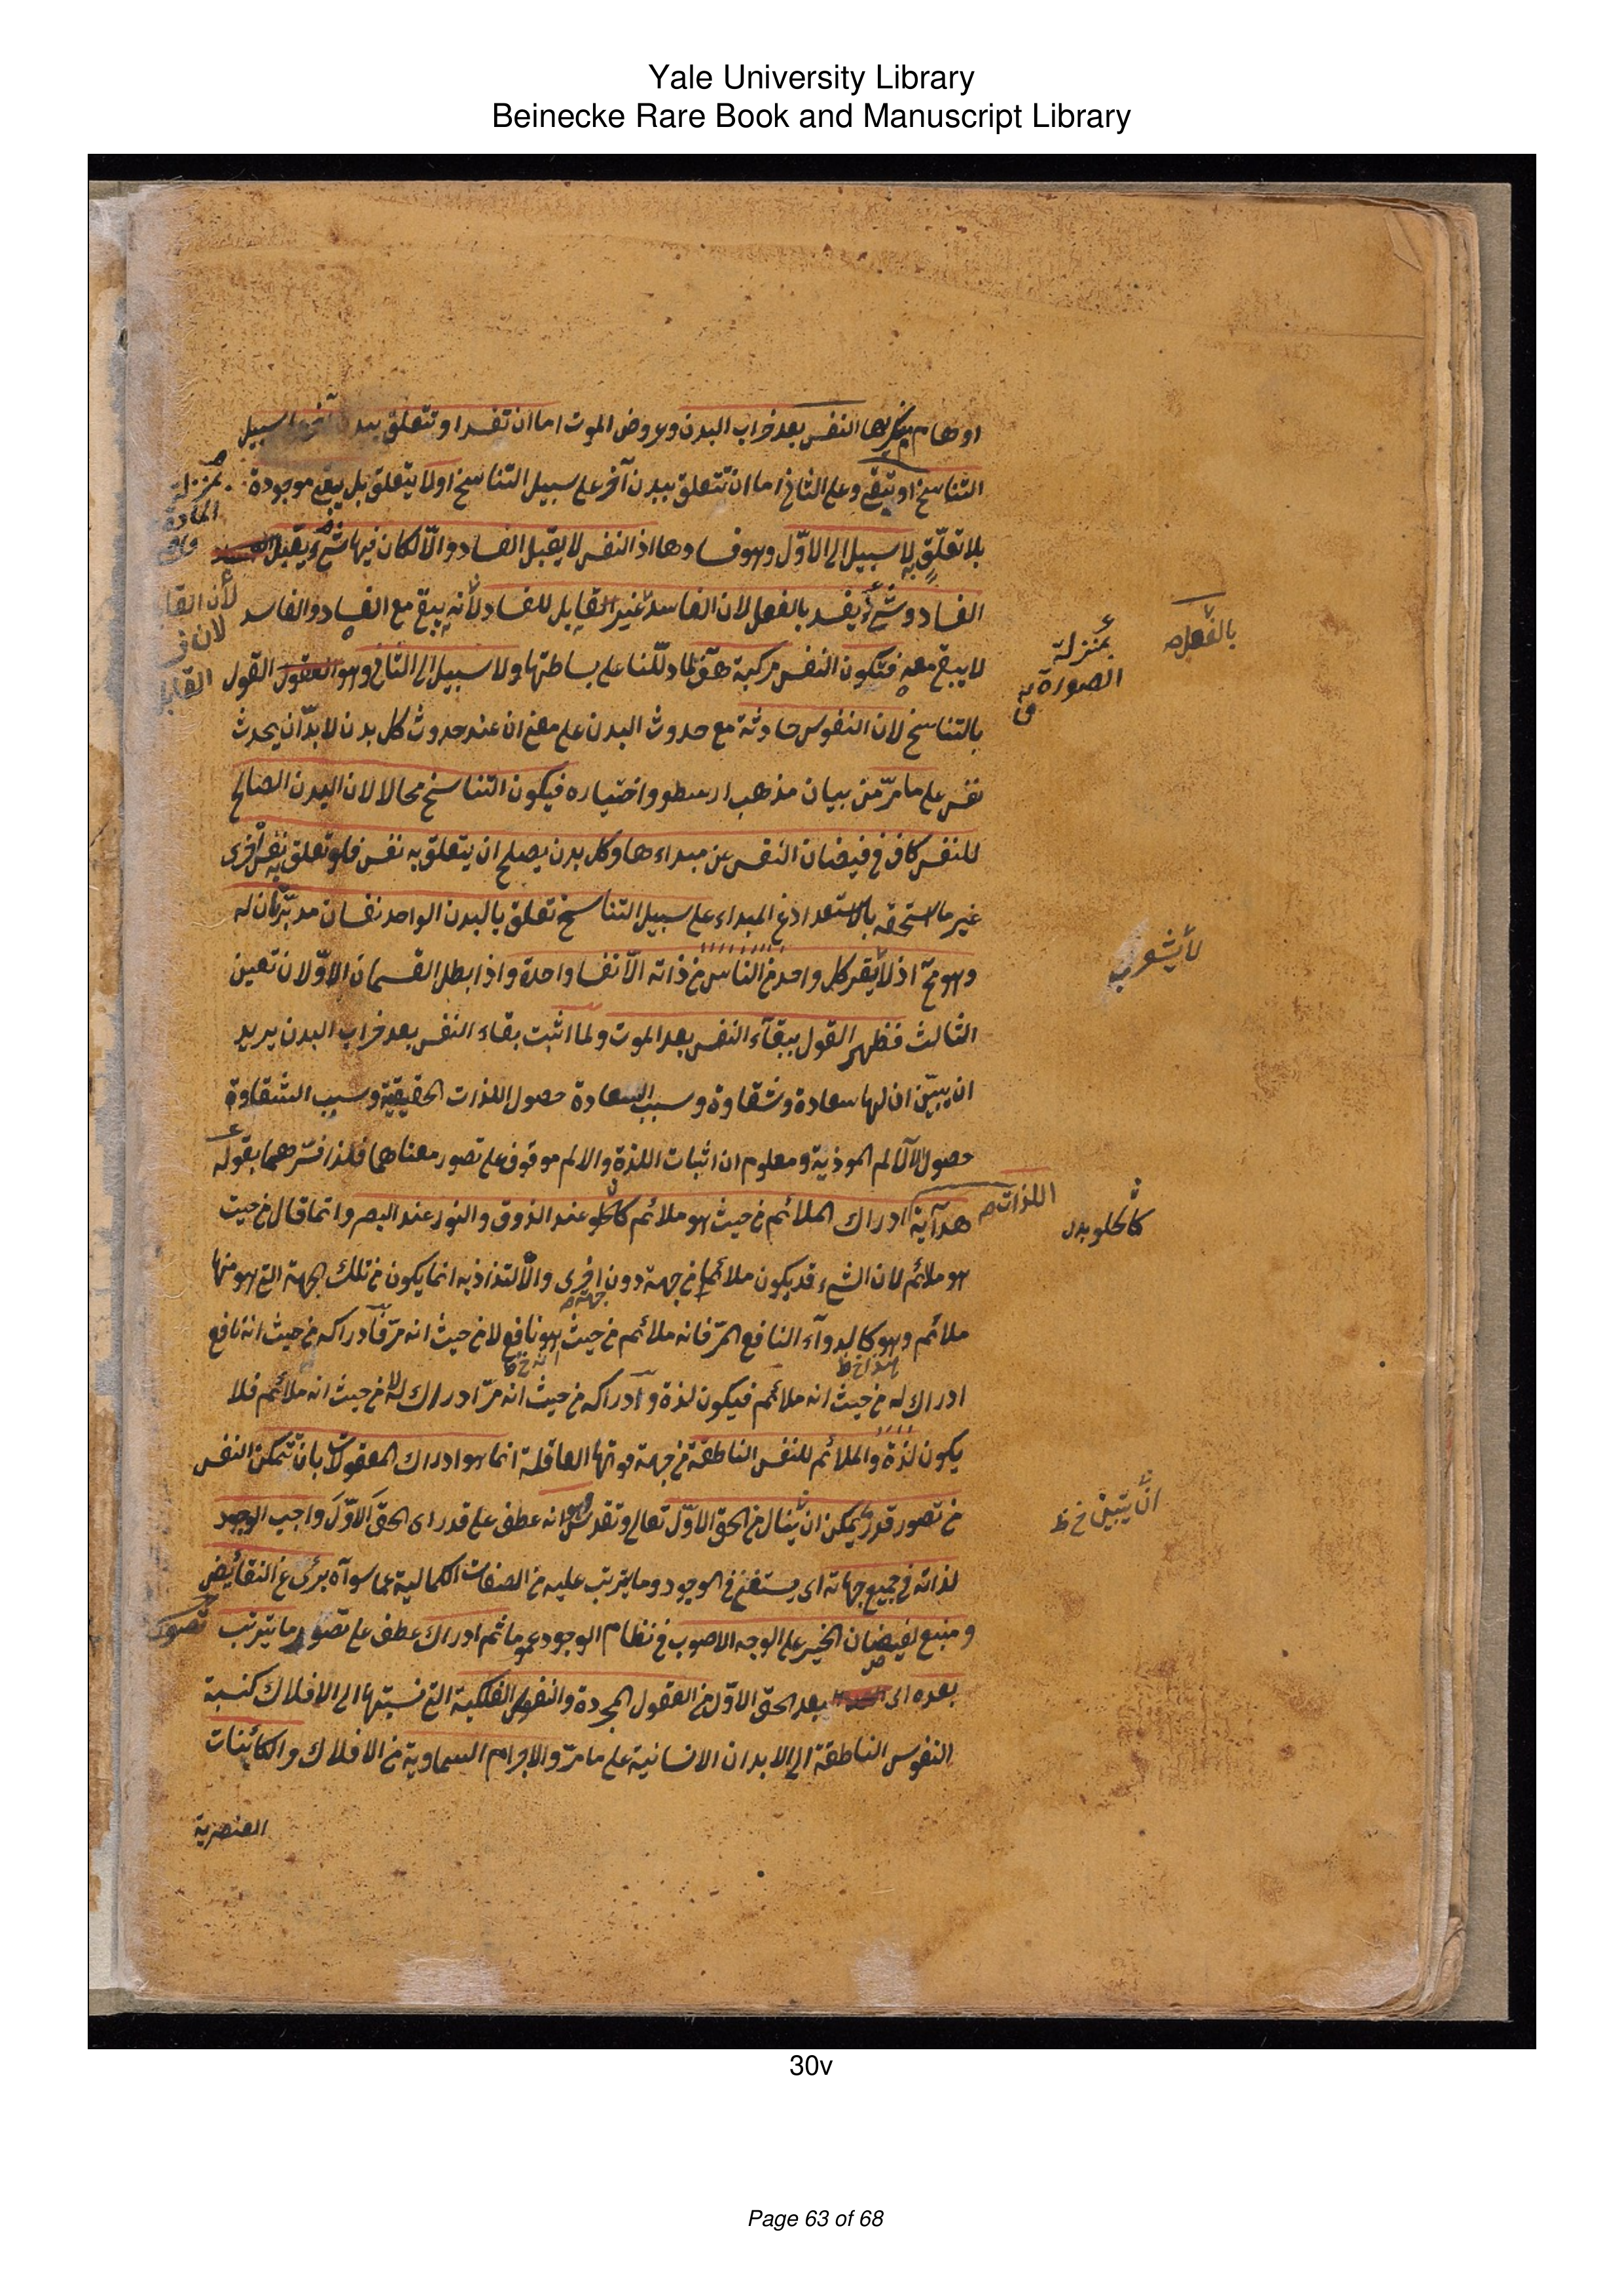 Yale University Library
Beinecke Rare Book and Manuscript Library
اوهام منكريها النفس بعد خراب البدن وعروض الموت اما ان تفسد او تتعلق ببدن آخر سبيل
التناسخ او تبقى وعلى الثانى اما ان تتعلق ببدن آخر على سبيل التناسخ اولا يتعلق بل يبقى موجودة
بلا تعلّق به لا سبيل الى الاوّل وهو فسادها اذ النفس لا يقبل الفساد والّا لكان فيها شئ يقبل
الفساد وشئ يفسد بالفعل لان الفاسد غير القابل للفساد لانه يبقى مع الفساد والفاسد
لا يبقى معه فتكون النفس مركبة هف لما دلّلنا على بساطتها ولا سبيل الى الثانى وهو القول
بالتناسخ لان النفوس حادثة مع حدوث البدن على معنى ان عند حدوث كل بدن لا بدّ ان يحدث
نفس على ما مرّ من بيان مذهب ارسطو واختياره فيكون التناسخ محالا لان البدن الصالح
للنفس كاف فى فيضان النفس عن مبداءها وكل بدن يصلح ان يتعلق به نفس فلو تعلق به نفس اخرى
غير ما استحقه بالاستعداد عن المبداء على سبيل التناسخ تعلق بالبدن الواحد نفسان مدبّرتان له
وهو مح اذ لا يقر كل واحد من الناس من ذاته الّا نفسا واحدة واذا بطل القسمان الاوّلان تعين
الثالث فظهر القول ببقآء النفس بعد الموت ولما اثبت بقاء النفس بعد خراب البدن يريد
ان يبيّن ان لها سعادة وشقاوة وسبب السعادة حصول اللذات الحقيقية وسبب الشقاوة
حصول الآلام الموذية ومعلوم ان اثبات اللذة والالم موقوف على تصور معناهما فلذا فسّرهما بقوله
هدآية ادراك الملائم من حيث هو ملائم كالحلو عند الذوق والنور عند البصر وانما قال من حيث
هو ملائم لان الشئ قد يكون ملائما من جهة دون اخرى والالتذاذ به انما يكون من تلك الجهة التى هو منها
ملائم وهو كالدوآء النافع المرّ فانه ملائم من حيث هو نافع لا من حيث انه مرّ فادراكه من حيث انه نافع
ادراك له من حيث انه ملائم فيكون لذة وادراكه من حيث انه مرّ ادراك له لا من حيث انه ملائم فلا
يكون لذة والملائم للنفس الناطقة من جهة قوتها العاقلة انما هو ادراك المعقولات بان تتمكن النفس
من تصور قدر ما يمكن ان ينال من الحق الاوّل تعالى وتقدس وانه عطف على قدر اى الحق الاوّل واجب الوجود
لذاته فى جميع جهاته اى يستغنى فى الوجود وما يترتب عليه من الصفات الكمالية عما سوآه برئ عن النقائص
ومنبع لفيضان الخير على الوجه الاصوب فى نظام الوجود عموما ثم ادراك عطف على تصور ما يترتب
بعده اى بعد الحق الاوّل من العقول المجردة والنفوس الفلكية التى نسبتها الى الافلاك كنسبة
النفوس الناطقة الى الابدان الانسانية على ما مرّ والاجرام السماوية من الافلاك والكائنات
العنصرية
بمنزلة
المادة
لان القا
لان
القابل
بالفعل
بمنزلة
الصورة
لا يشعر
اللذات
كالحلو
جهة
هذا خ ظ
انه خ ظ
ان يتبين خ ظ
تصور
30v
Page 63 of 68